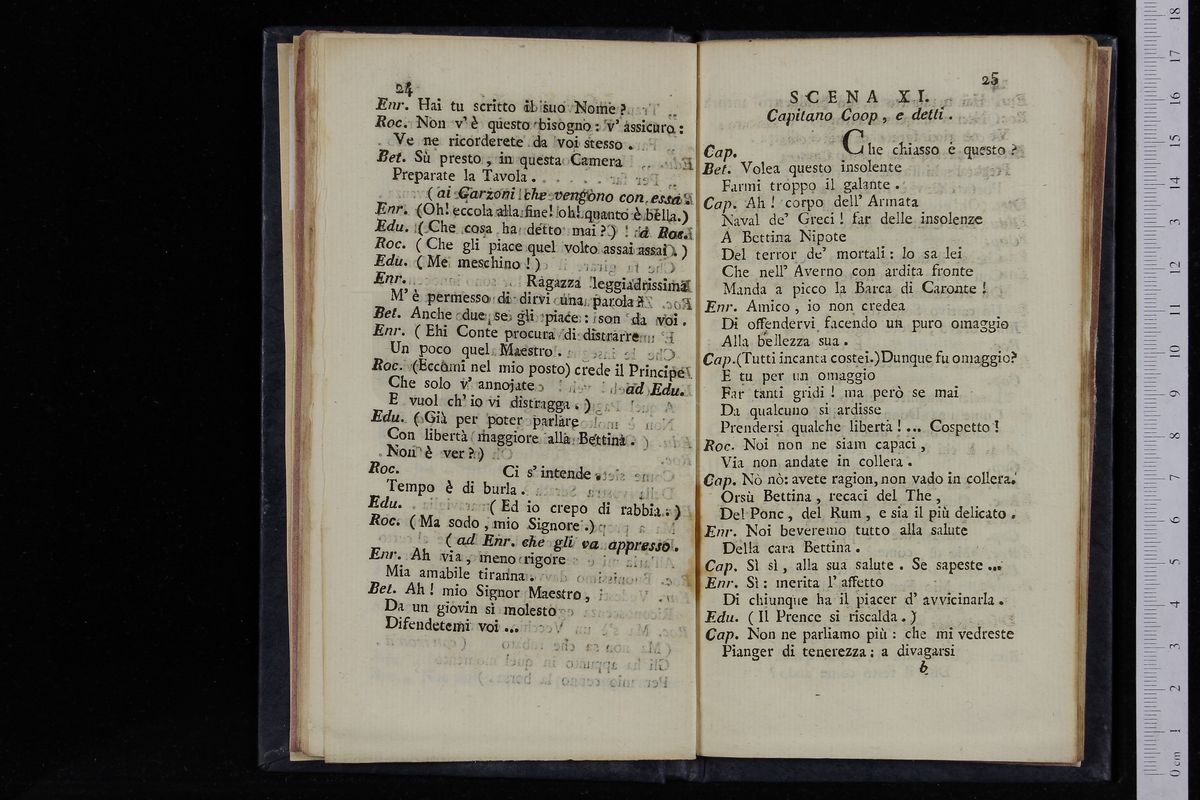 24
Enr. Hai tu scritto il suo Nome?
Roc. Non v'è questo bisogno: v'assicuro:
Ve ne ricorderete da voi stesso.
Bet. Sù presto, in questa Camera
Preparate la Tavola.
(ai Garzoni che vengono con essa.
Enr. (Oh! eccola alla fine! oh! quanto è bella.)
Edu. (Che cosa ha detto mai?) a Roc.
Roc. (Che gli piace quel volto assai assai.)
Edu. (Me meschino!)
Enr. Ragazza leggiadrissima
M'è permesso di dirvi una parola?
Bet. Anche due se gli piace: son da voi.
Enr. (Ehi Conte procura di distrarre
Un poco quel Maestro.
Roc. (Eccomi nel mio posto) crede il Principe
Che solo v'annojate ad Edu.
E vuol ch'io vi distragga.)
Edu. (Già per poter parlare
Con libertà maggiore alla Bettina.
Non è ver?)
Roc. Ci s'intende.
Tempo è di burla.
Edu. (Ed io crepo di rabbia.)
Roc. (Ma sodo, mio Signore.)
(ad Enr. che gli va appresso.
Enr. Ah via, meno rigore
Mia amabile tiranna.
Bet. Ah! mio Signor Maestro,
Da un giovin sì molesto
Difendetemi voi ...
25
SCENA XI.
Capitano Coop, e detti.
Cap. Che chiasso è questo?
Bet. Volea questo insolente
Farmi troppo il galante.
Cap. Ah! corpo dell' Armata
Naval de' Greci! far delle insolenze
A Bettina Nipote
Del terror de' mortali: lo sa lei
Che nell' Averno con ardita fronte
Manda a picco la Barca di Caronte!
Enr. Amico, io non credea
Di offendervi facendo un puro omaggio
Alla bellezza sua.
Cap. (Tutti incanta costei.) Dunque fu omaggio?
E tu per un omaggio
Far tanti gridi! ma però se mai
Da qualcuno si ardisse
Prendersi qualche libertà! ... Cospetto!
Roc. Noi non ne siam capaci,
Via non andate in collera.
Cap. Nò nò: avete ragion, non vado in collera.
Orsù Bettina, recaci del The,
Del Ponc, del Rum, e sia il più delicato.
Enr. Noi beveremo tutto alla salute
Della cara Bettina.
Cap. Sì sì, alla sua salute. Se sapeste ...
Enr. Sì: merita l'affetto
Di chiunque ha il piacer d'avvicinarla.
Edu. (Il Prence si riscalda.)
Cap. Non ne parliamo più: che mi vedreste
Pianger di tenerezza: a divagarsi
b